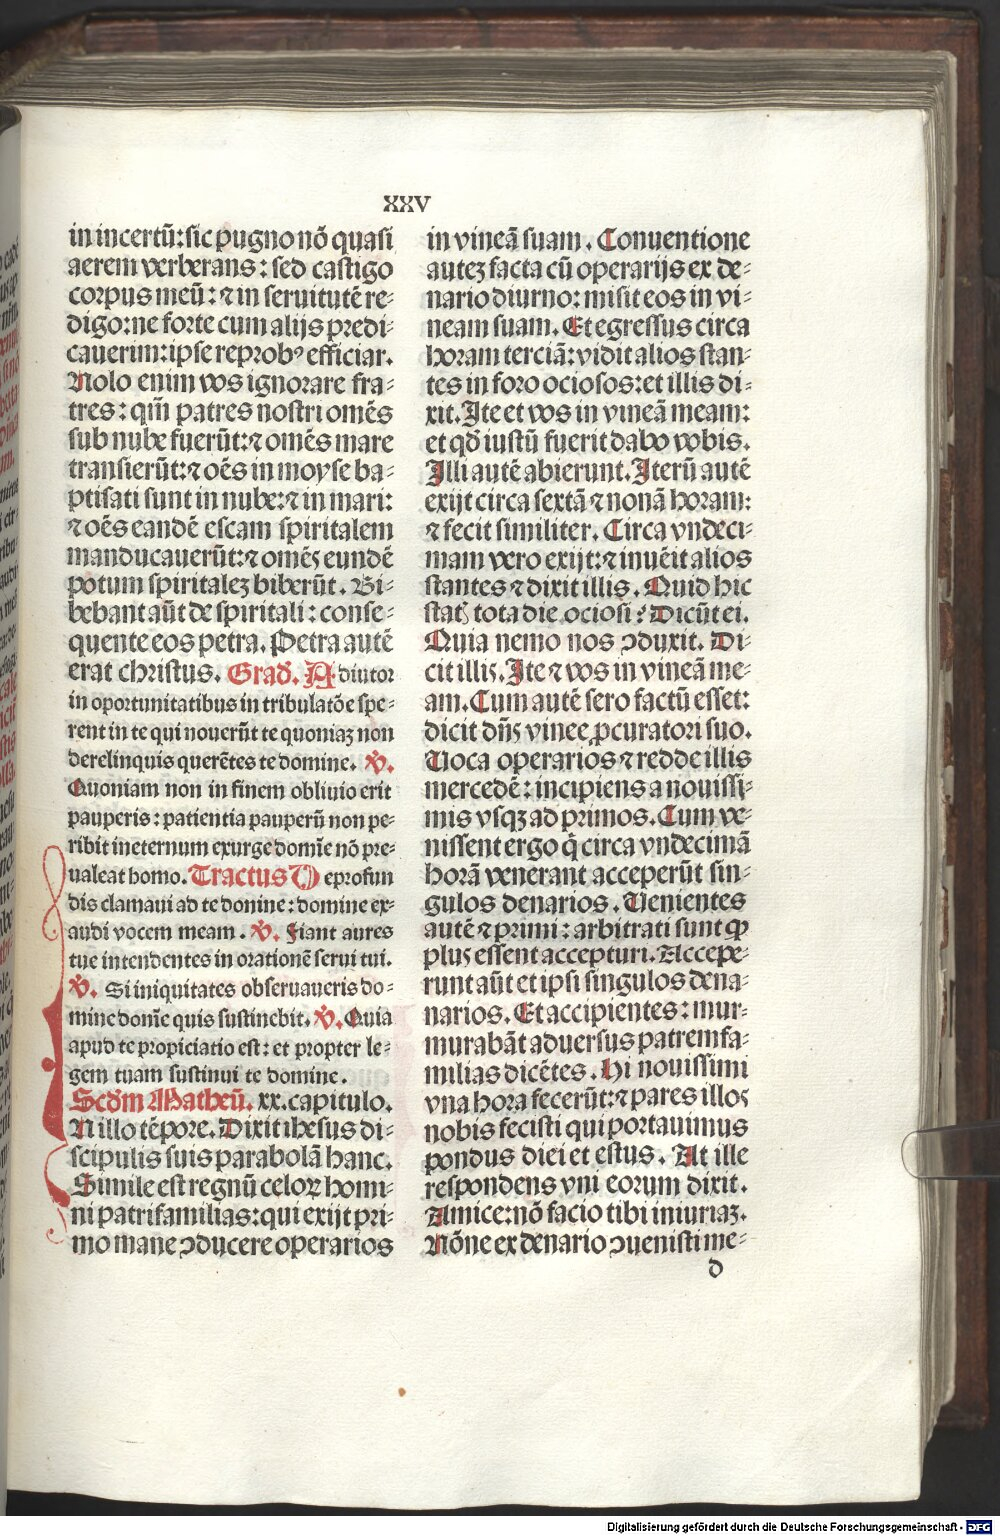 XXV
in incertū: sic pugno nō quasi
aerem verberans: sed castigo
corpus meū: ⁊ in seruitutē re⸗
digo: ne forte cum alijs predi⸗
cauerim: ipse reprobꝰ efficiar.
Nolo enim vos ignorare fra⸗
tres: qm̄ patres nostri omēs
sub nube fuerūt: ⁊ omēs mare
transierūt: ⁊ oēs in moyse ba⸗
ptisati sunt in nube: ⁊ in mari:
⁊ oēs eandē escam spiritalem
manducauerūt: ⁊ omēs eundē
potum spiritalez biberūt. Bi⸗
bebant aūt de spiritali: conse⸗
quente eos petra. Petra autē
erat christus. Grad. Adiutor
in oportunitatibus in tribulatōe spe⸗
rent in te qui nouerūt te quoniaz non
derelinquis querētes te domine. ℣.
Quoniam non in finem obliuio erit
pauperis: patientia pauperū non pe⸗
ribit in eternum exurge domīe nō pre⸗
ualeat homo. Tractus De profun
dis clamaui ad te domine: domine ex⸗
audi vocem meam. ℣. Fiant aures
tue intendentes in orationē serui tui.
℣. Si iniquitates obseruaueris do⸗
mine domīe quis sustinebit. ℣. Quia
apud te propiciatio est: et propter le⸗
gem tuam sustinui te domine.
Scdm Matheū. xx. capitulo.
IN illo tēpore. Dixit ihesus di⸗
scipulis suis parabolā hanc.
Simile est regnū celoꝝ homi⸗
ni patrifamilias: qui exijt pri⸗
mo mane ↄducere operarios
in vineā suam. Conuentione
autez facta cū operarijs ex de⸗
nario diurno: misit eos in vi⸗
neam suam. Et egressus circa
horam terciā: vidit alios stan⸗
tes in foro ociosos: et illis di⸗
xit. Ite et vos in vineā meam:
et qd̄ iustū fuerit dabo vobis.
Illi autē abierunt. Iterū autē
exijt circa sextā ⁊ nonā horam:
⁊ fecit similiter. Circa vndeci⸗
mam vero exijt: ⁊ inuēit alios
stantes ⁊ dixit illis. Quid hic
statꝭ tota die ociosi? Dicūt ei.
Quia nemo nos ↄduxit. Di⸗
cit illis. Ite ⁊ vos in vineā me⸗
am. Cum autē sero factū esset:
dicit dn̄s vinee ꝓcuratori suo.
Uoca operarios ⁊ redde illis
mercedē: incipiens a nouissi⸗
mis vsqꝫ ad primos. Cum ve⸗
nissent ergo q̄ circa vndecimā
horā venerant acceperūt sin⸗
gulos denarios. Uenientes
autē ⁊ primi: arbitrati sunt ꝙ
plus essent accepturi. Accepe⸗
runt aūt et ipsi singulos dena⸗
narios. Et accipientes: mur⸗
murabāt aduersus patremfa⸗
milias dicētes. Hi nouissimi
vna hora fecerūt: ⁊ pares illos
nobis fecisti qui portauimus
pondus diei et estus. At ille
respondens vni eorum dixit.
Amice: nō facio tibi iniuriaz.
Nōne ex denario ↄuenisti me⸗
d
Digitalisierung gefördert durch die Deutsche Forschungsgemeinschaft - DFG